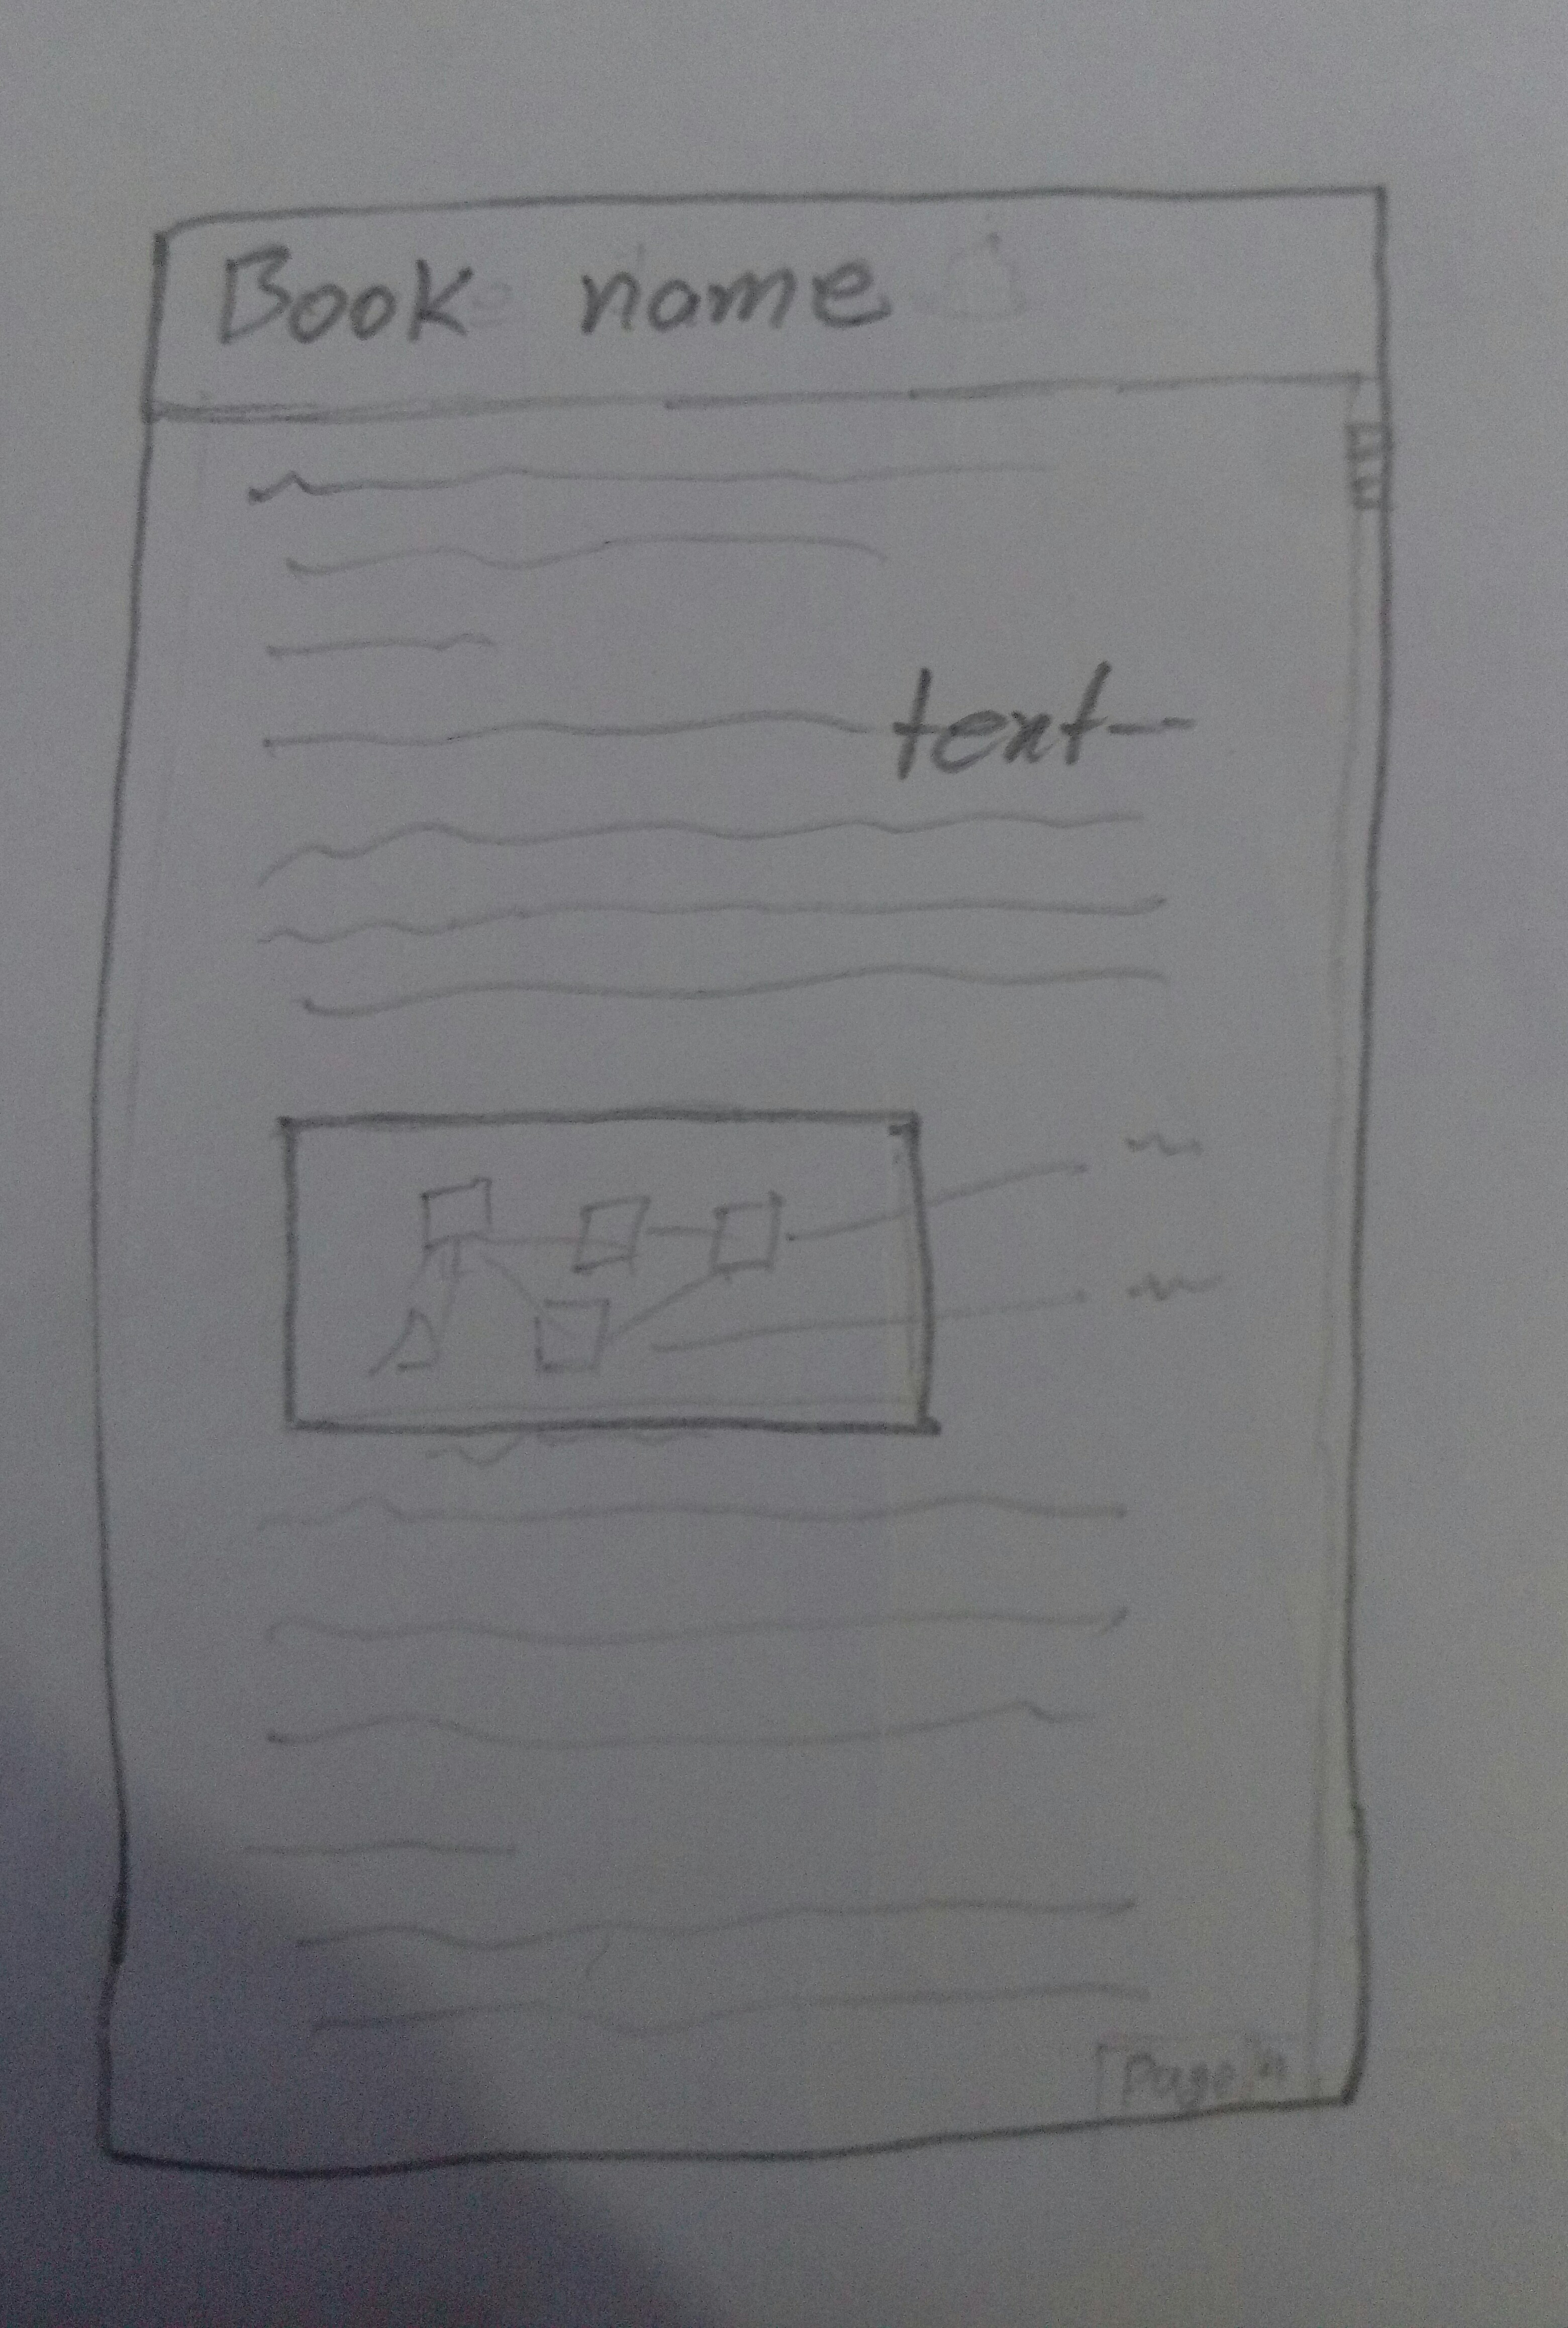 Book name
text
Page